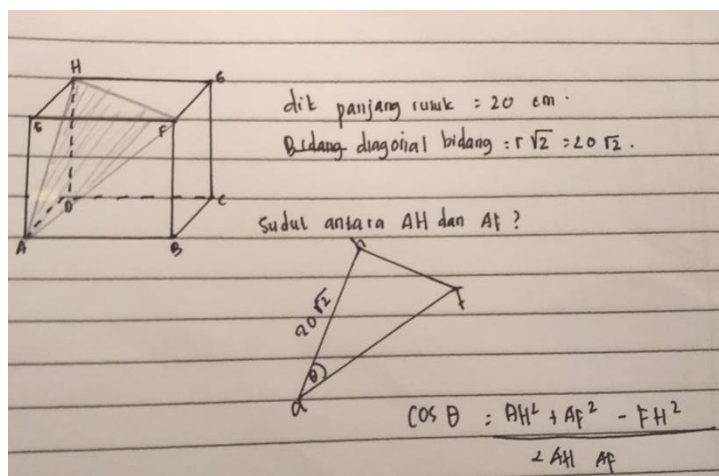 H
G
E
F
D
C
A
B
dik panjang rusuk = 20 cm.
Bidang diagonal bidang = r √2 = 20 √2.
Sudut antara AH dan AF ?
h
20√2
f
θ
a
cos θ = AH² + AF² - FH²
2 AH AF